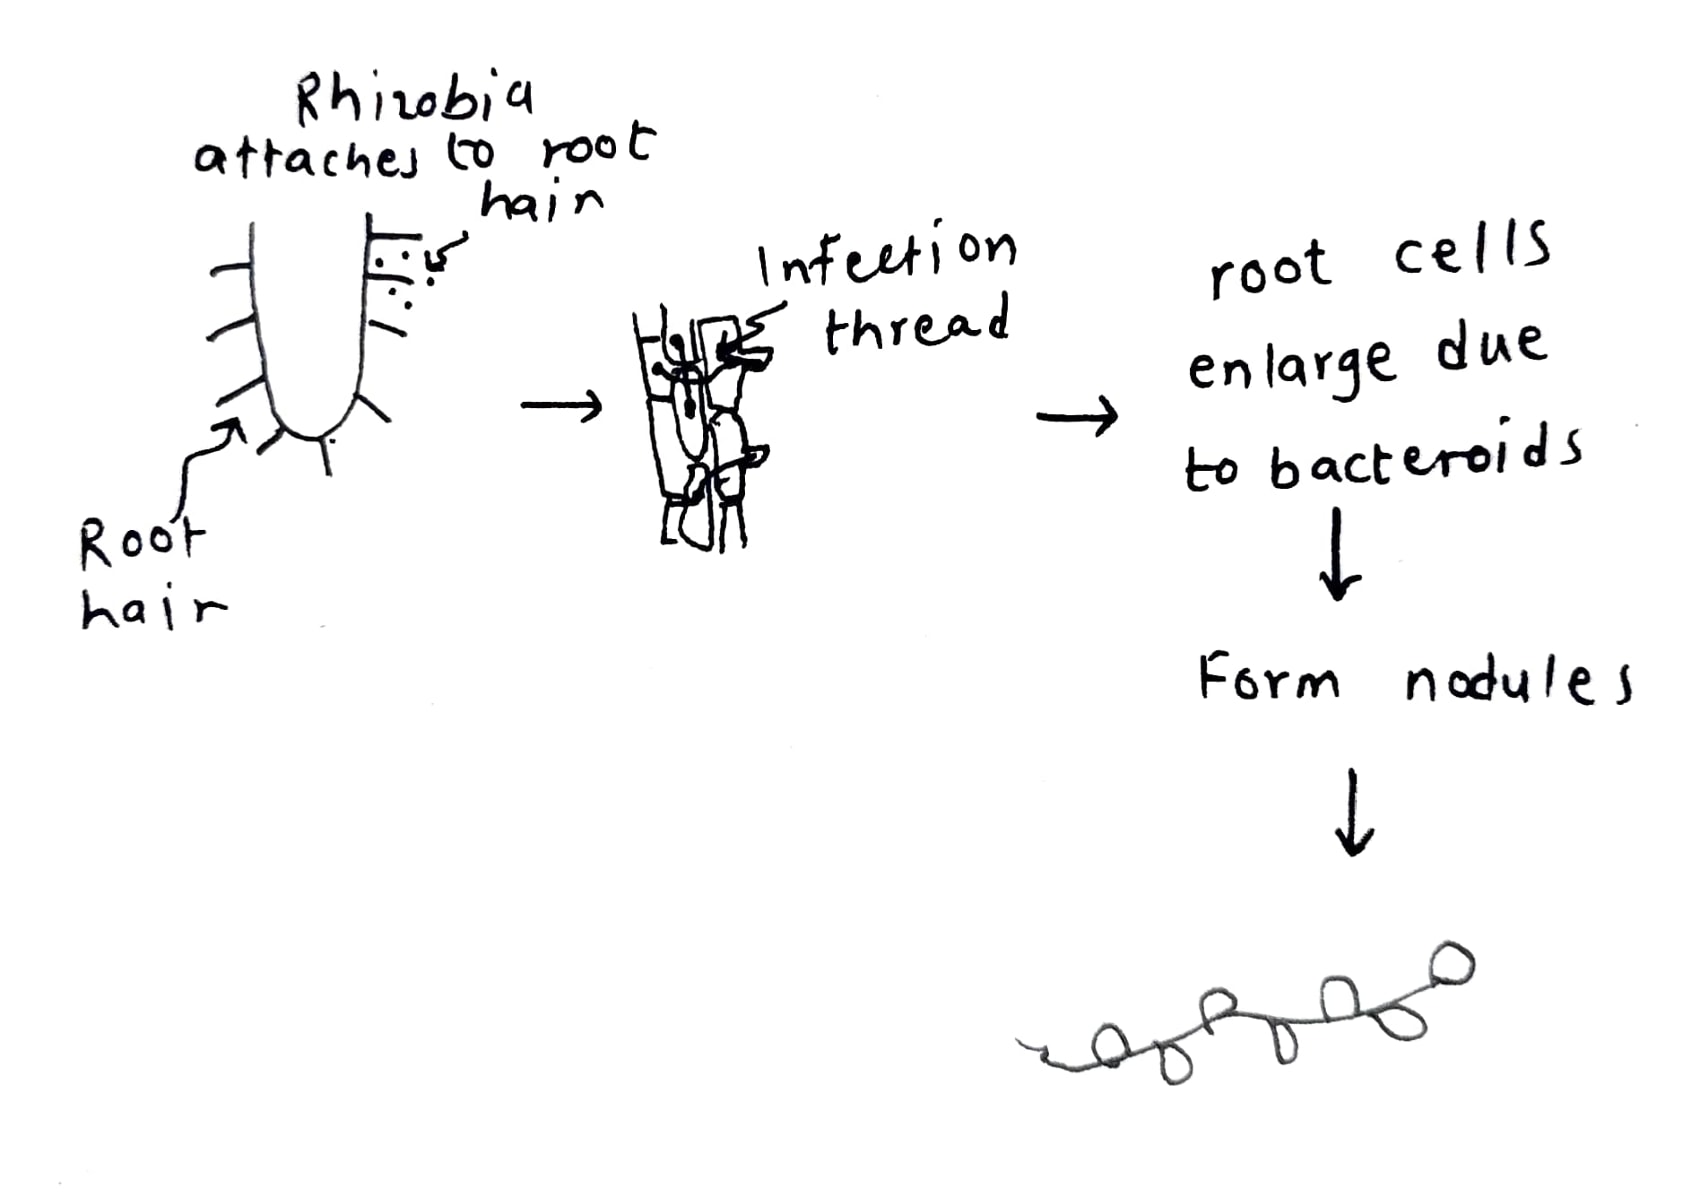 Rhizobia
attaches to root
hair
Root
hair
Infection
thread
root cells
enlarge due
to bacteroids
Form nodules